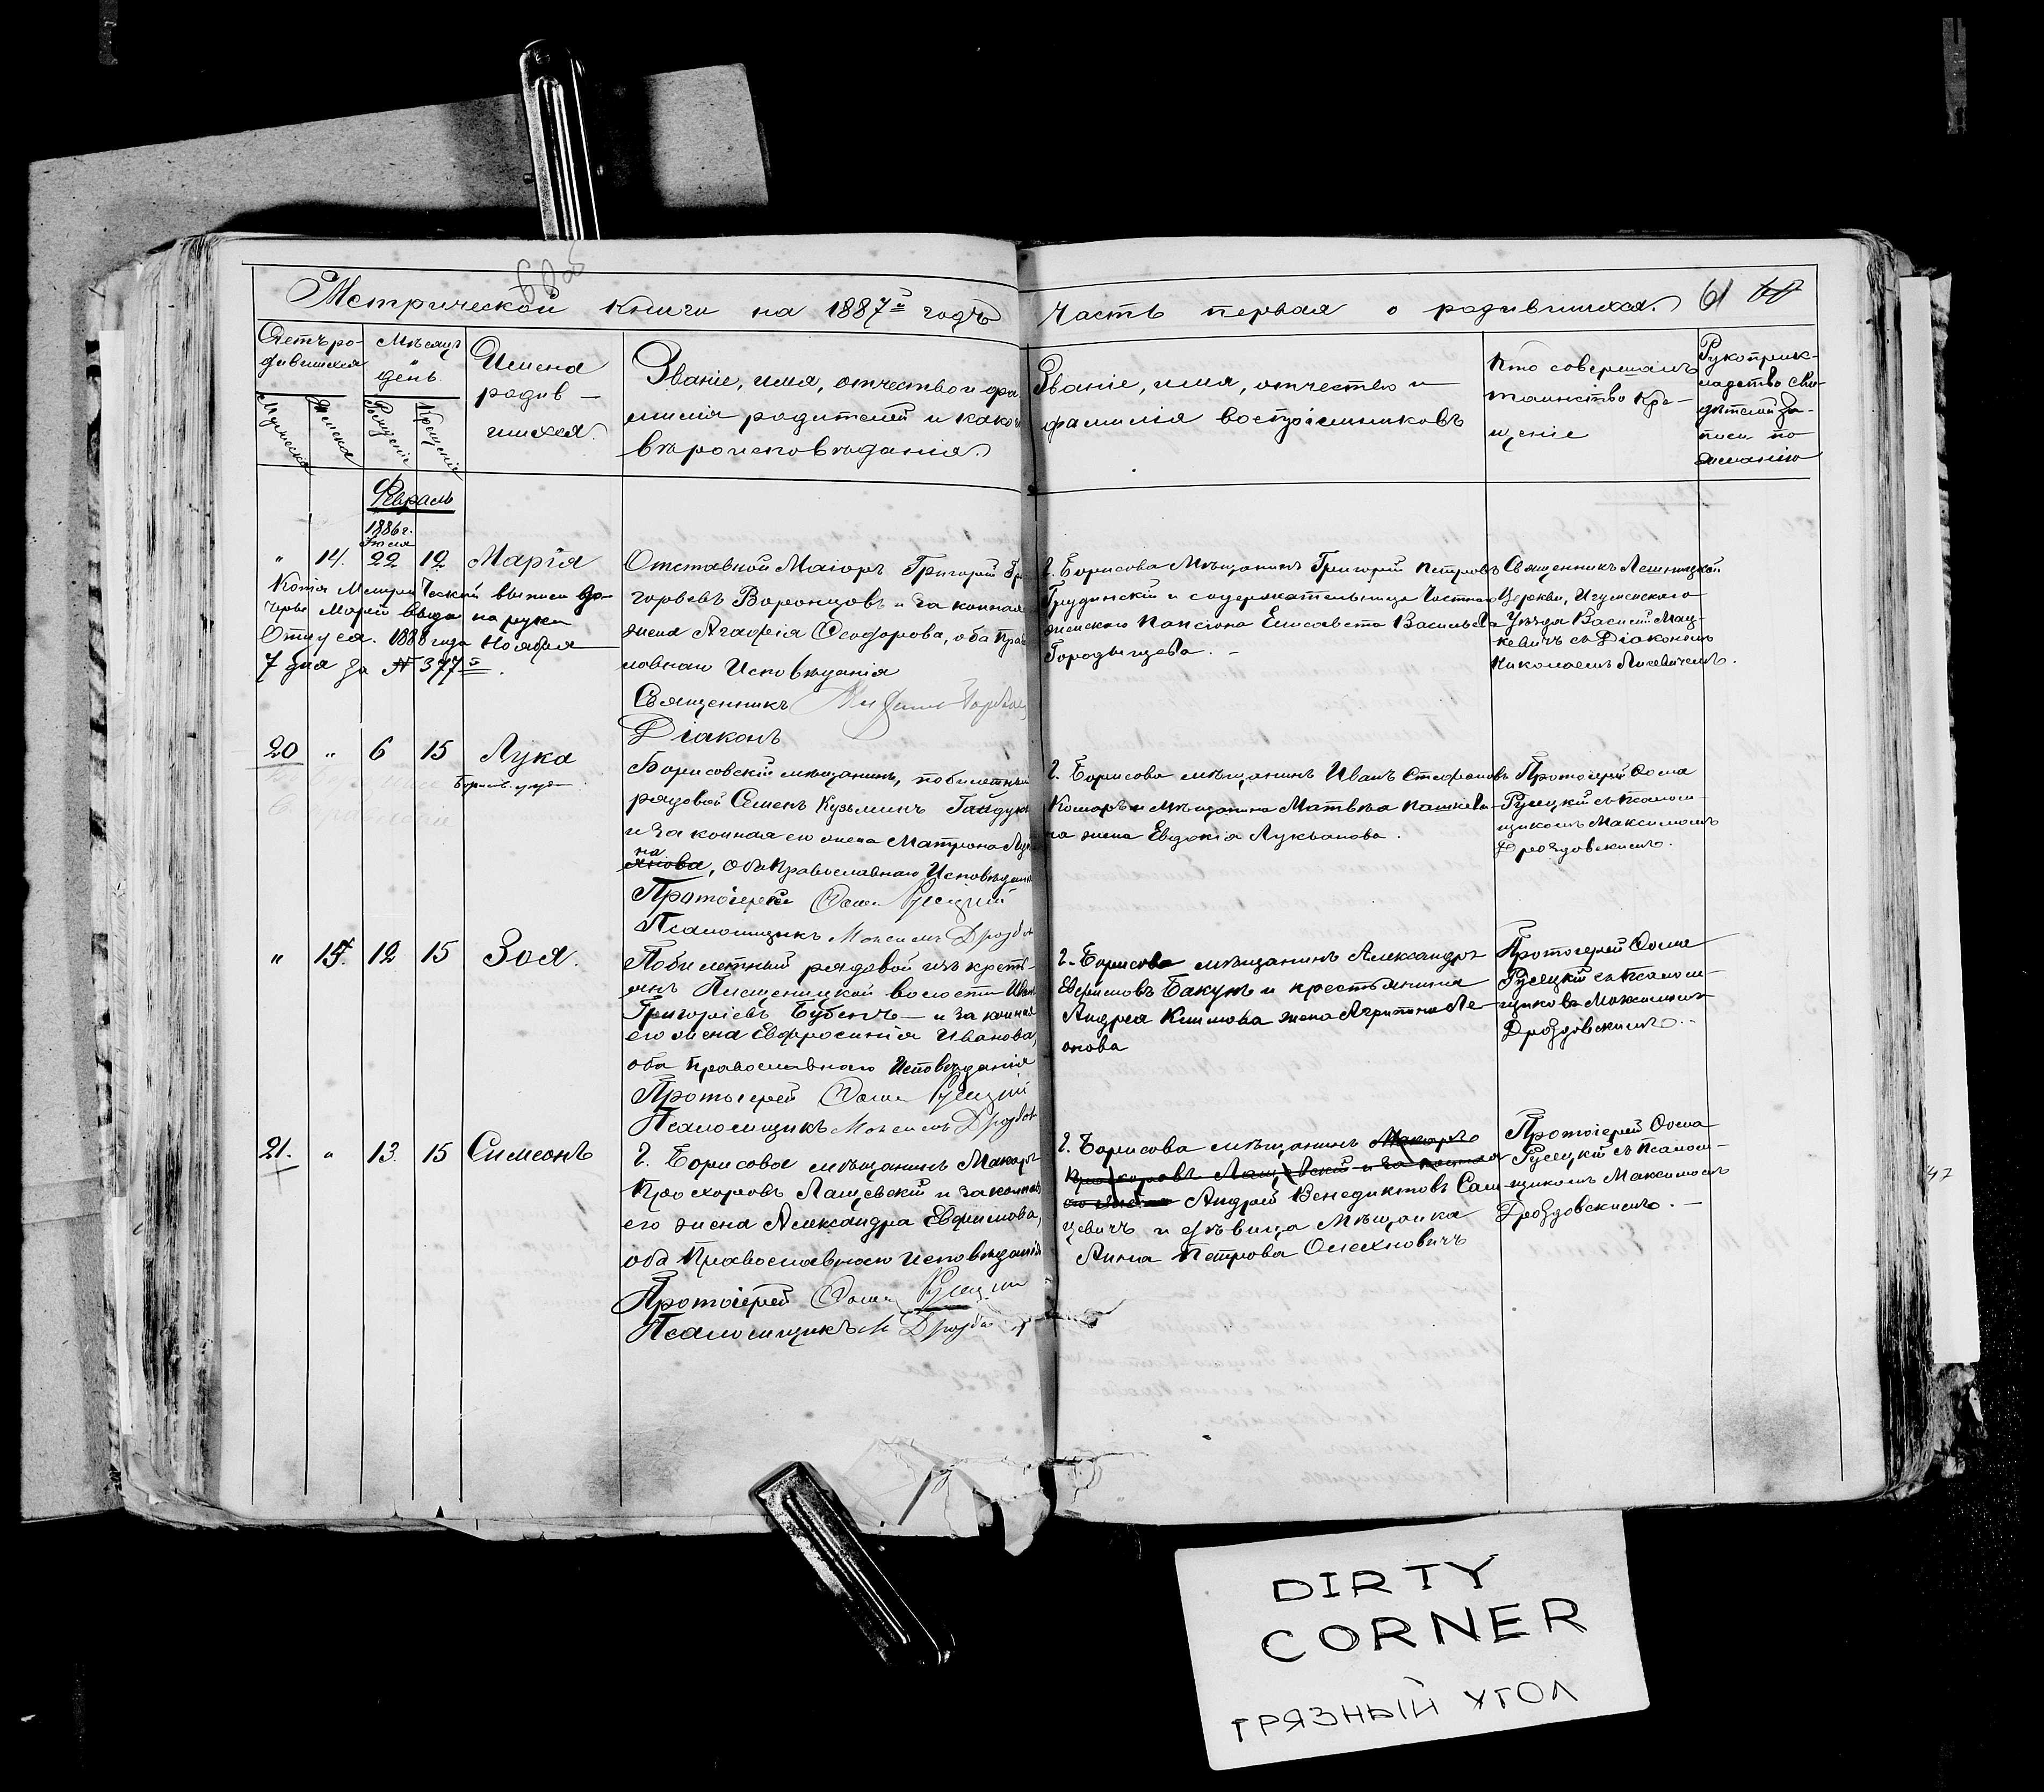 Метрической книги на 1887й годъ часть первая о родившихся. 61
Счетъ ро-
дившихся
Мужеска
Женска
Мѣсяцъ
и
день.
Рожденія
Крещенія
Имена
родив-
шихся.
Званіе, имя, отчество и фа
милія родителей и какого
вѣроисповѣданія.
Званіе, имя, отчество и
фамилія воспріемниковъ
Кто совершалъ
таинство Кре-
щенія
Рукоприк-
ладство сви-
дѣтелей за-
писи по
желанію
Февраль
1886 г.
Іюля
" 14. 22 12 Марія
Копія Метрической выписи до-
черью Маріей выдана на руки
1888 года Ноября
7 дня за № 377.
Отставной Маіоръ Григорій Гри
горьевъ Воронцовъ и законная
жена Агафія Ѳеодорова, оба Прав
лавнаго Исповѣданія
Священникъ
Діаконъ
Г. Борисова Мѣщанинъ Григорій Петровъ
Грудинскій и содержательница Частнаго
женскаго Пансіона Елисавета Васильева
Городыцева. –
Священникъ
Церкви, Игуменскаго
Уѣзда Василій Мац-
кевичъ съ Діакономъ
Николаемъ
20 " 6 15 Лука
Борисовскій мѣщанинъ, побилетный
рядовой Семенъ Кузьминъ Гайдукъ
и законная его жена Матрона Лук
на
янова, оба Православнаго Исповѣданія
Протоіерей Ѳома Русецкій
Псаломщикъ Максимъ Дрозд
Г. Борисова мѣщанинъ Иванъ Стефановъ
Комаръ и Мѣщанина Матвѣя Пашкеви-
ча жена Евдокія Лукьянова.
Протоіерей Ѳома
Русецкій съ Псалом-
щикомъ Максимомъ
Дроздовскимъ.
" 15. 12 15 Зоя.
Побилетный рядовой изъ кресть-
янъ волости Иванъ
Григорьевъ Бубенъ – и законная
его жена Евфросинія Иванова,
оба Православнаго Исповѣданія
Протоіерей Ѳома Русецкій
Псаломщикъ Максимъ Дроздов
Г. Борисова мѣщанинъ Александръ
Ефимовъ Бакунъ и крестьянина
Андрея Климова жена Агрипина Ле-
онова
Протоіерей Ѳома
Русецкій съ Псалом-
щикомъ Максимомъ
Дроздовскимъ. –
21. " 13. 15 Симеонъ
Г. Борисова мѣщанинъ Макаръ
Прохоровъ Лащевскій и законная
его жена Александра Евфимова,
оба Православнаго Исповѣданія
Протоіерей Ѳома Русецкій
Псаломщикъ М Дроздов
Г. Борисова мѣщанинъ Макаръ
Прохоровъ Лащевскій и законная
его жена Андрей Венедиктовъ Сац-
цевичъ и дѣвица Мѣщанка
Анна Петрова Олехновичъ
Протоіерей Ѳома
Русецкій съ Псалом-
щикомъ Максимомъ
Дроздовскимъ. –
47
DIRTY
CORNER
ГРЯЗНЫЙ УГОЛ